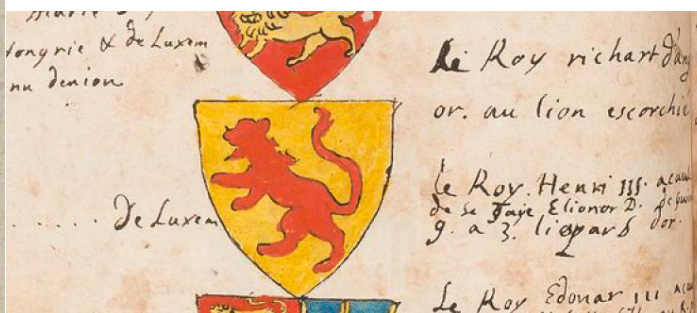 marie
&
de Luxem
nu denion
..... De Luxem
Le Roy richart d'ang
or. au lion escorchie
Le Roy. Henri III. acau
de se Elionor D.
g. a 3. liepars d'or.
Le Roy Edouar III